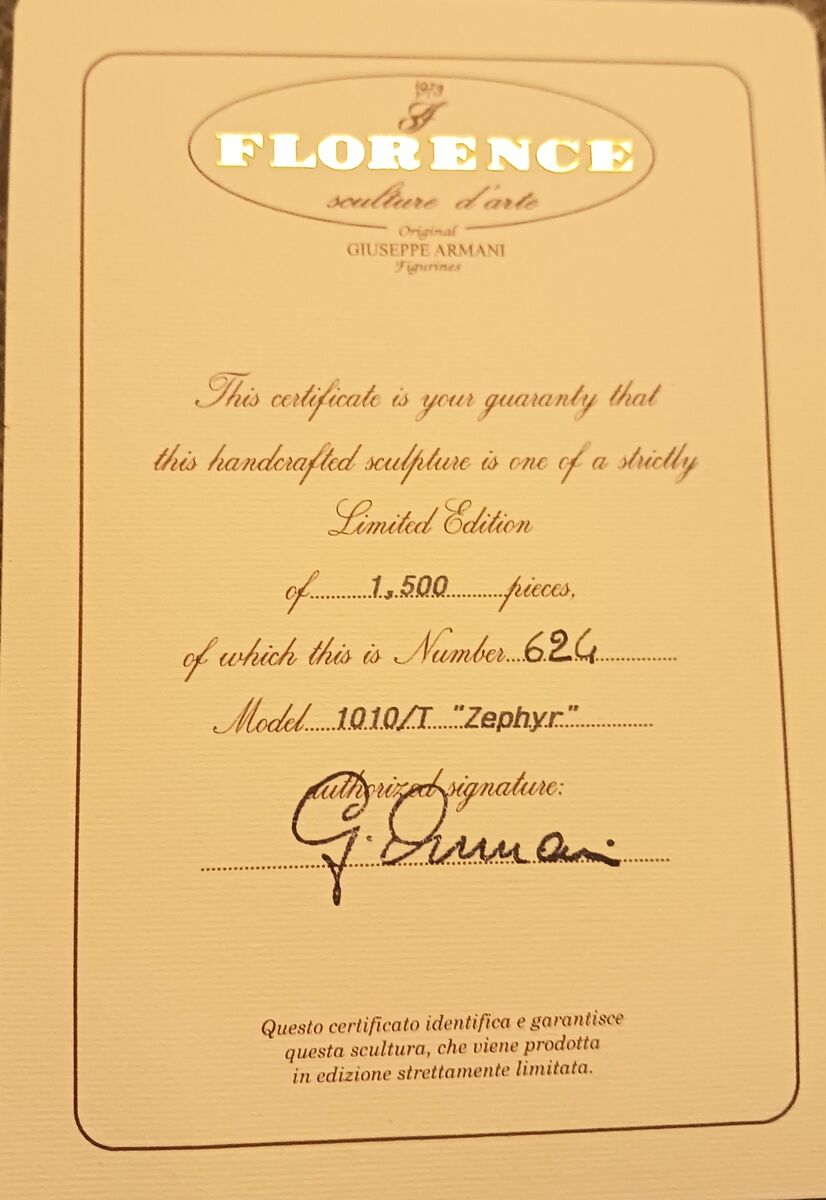 1973
F
FLORENCE
sculture d'arte
Original
GIUSEPPE ARMANI
Figurines
This certificate is your guaranty that
this handcrafted sculpture is one of a strictly
Limited Edition
of 1,500 pieces,
of which this is Number 624
Model 1010/T "Zephyr"
authorized signature:
G. Armani
Questo certificato identifica e garantisce
questa scultura, che viene prodotta
in edizione strettamente limitata.